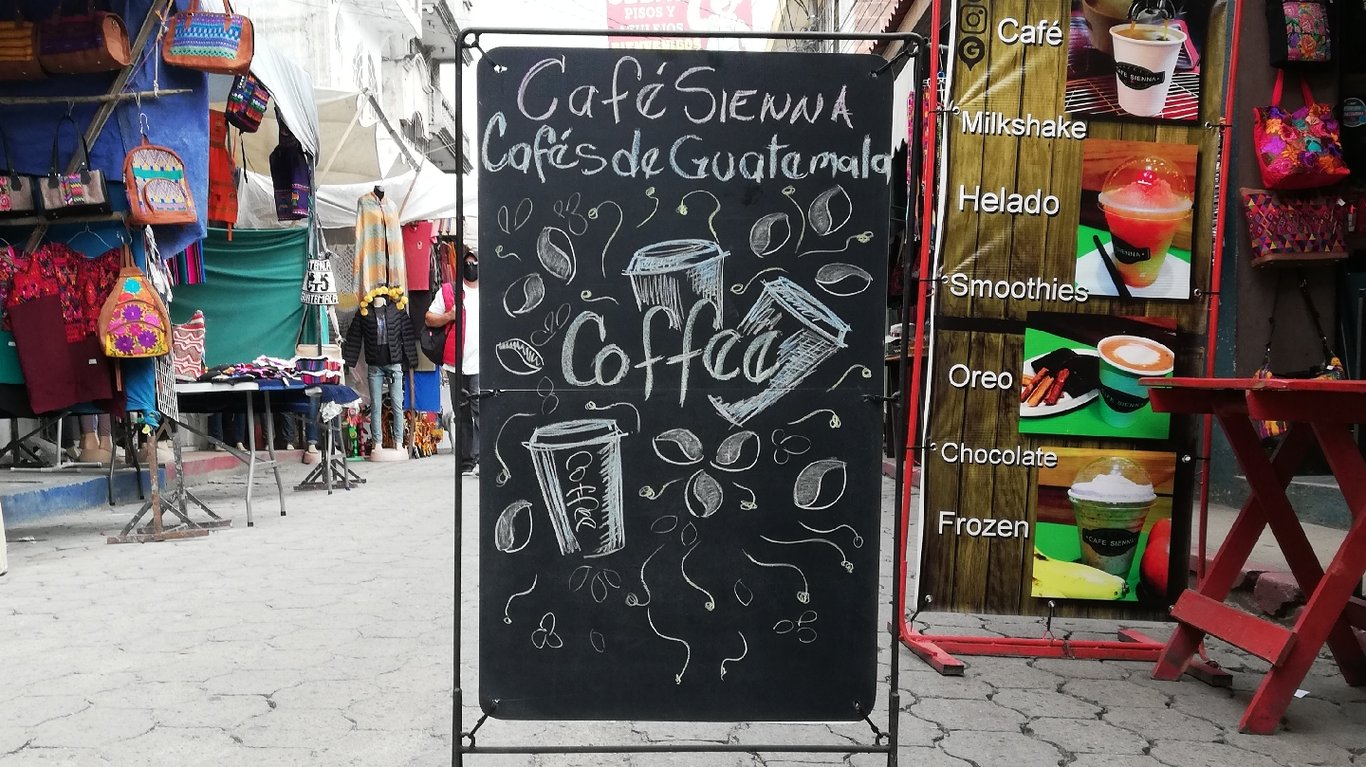 PISOS Y
Café SIENNA
Cafés de Guatemala
Coffee
Coffee
Café
Milkshake
Helado
Smoothies
Oreo
Chocolate
Frozen
CAFE SIENNA
SIENNA
CAFE SIENNA